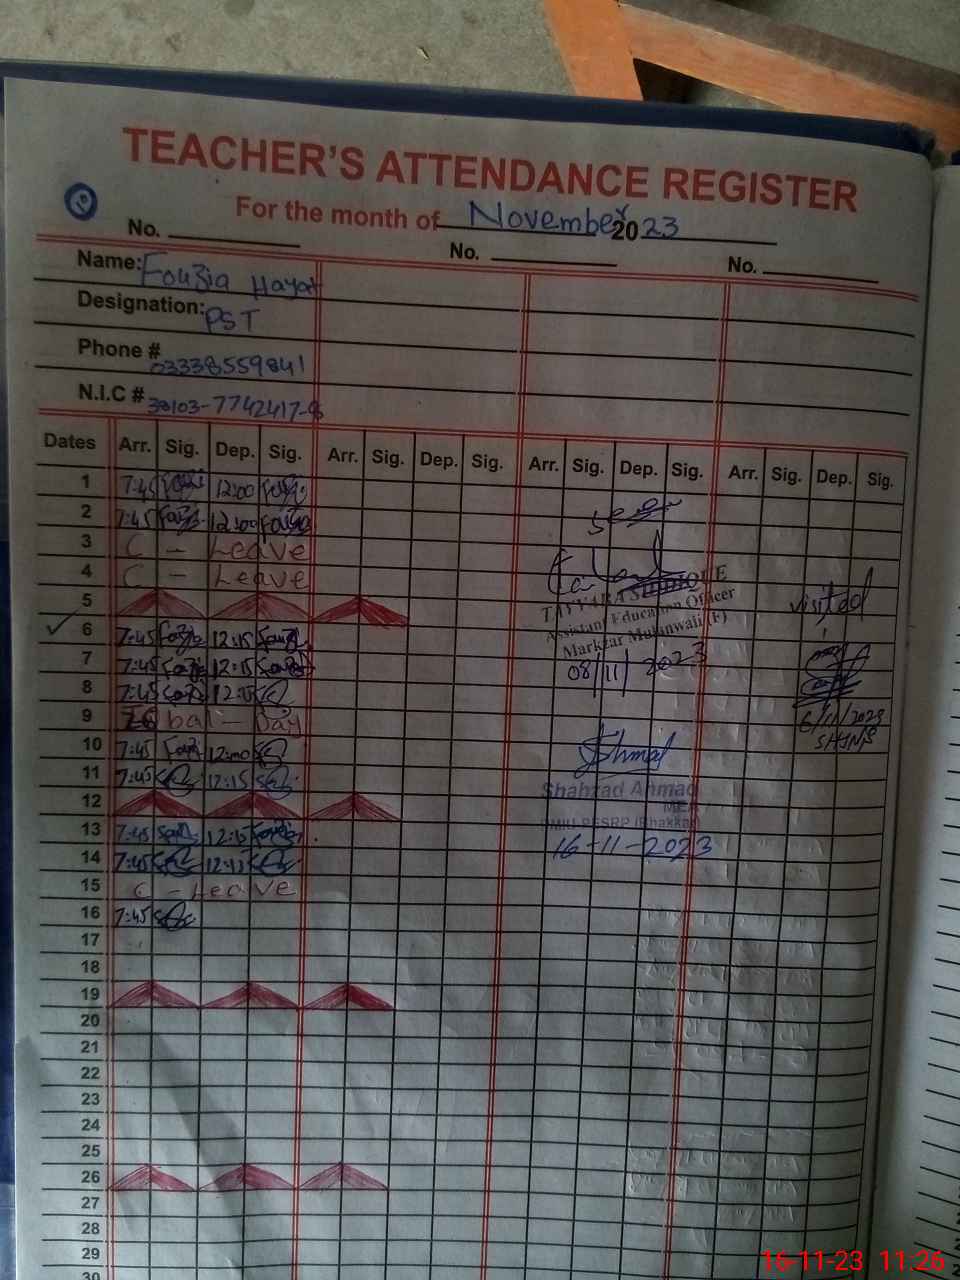 TEACHER'S ATTENDANCE REGISTER
For the month of November 2023
No. No. No.
Name: Fouzia Hayat
Designation: PST
Phone # 03338559841
N.I.C # 38103-7742417-8
Dates Arr. Sig. Dep. Sig. Arr. Sig. Dep. Sig. Arr. Sig. Dep. Sig. Arr. Sig. Dep. Sig.
1 7:45 12:00
2 7:45 12:00
3 C - Leave
4 C - Leave
TAYYABA SIDDIQUE
Assistant Education Officer
Markzar (F)
visited
5
6 7:45 12:15
7 7:45 12:15 08/11/2023
8 7:45 12:15
9 Iqbal - Day 6/11/2023
10 7:45 12:00
11 7:45 12:15
Shahzad Ahmad
MEA
12
PMIU-PESRP (Bhakkar)
13 7:45 12:15
14 7:45 12:15 16-11-2023
15 C - Leave
16 7:45
17
18
19
20
21
22
23
24
25
26
27
28
29
30
16-11-23 11:26